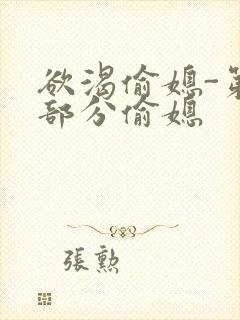 欲渴偷媳-第
部分偷媳
張勲